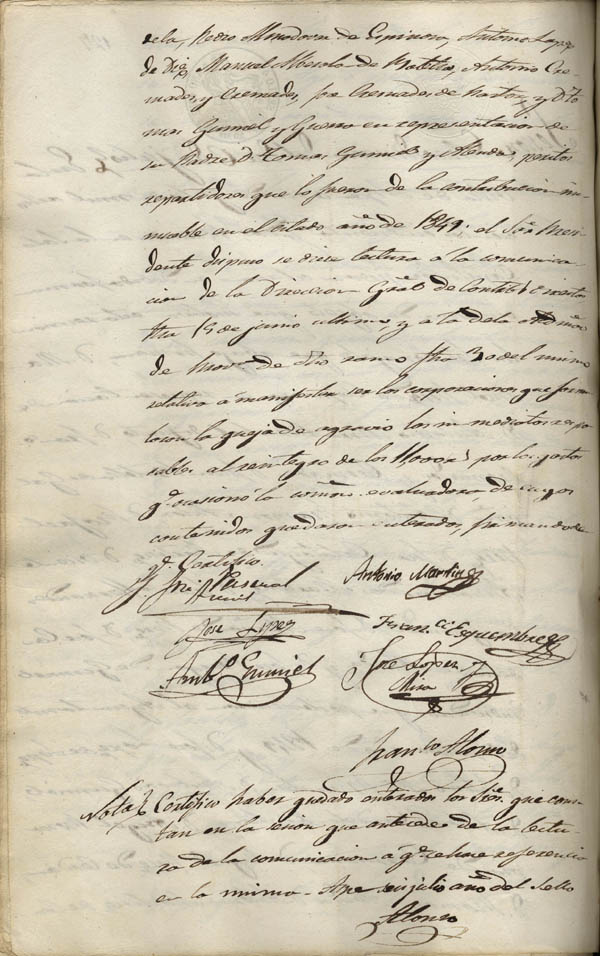 cela, Pedro Amodovar de Espinosa, Antonio Lopez
de Dio, Manuel Merolo de Motilla, Antonio Cre-
mades, y Cremades, por Cremades de Martos, y Dn. To
mas Gumiel y Guerra en representacion de
su Padre, D. Tomas Gumiel y Alenda, peritos
repartidores que lo fueron de la contribucion in-
mueble en el citado año de 1849; el Sor. Presi
dente dispuso se diese lectura a la comunica-
cion de la Direccion Gral de Contribs. directas
fha 15 de junio ultimo, y a la de la Admon.
de Prov. de dho ramo fha 30 del mismo
relativa á manifestar ser las corporaciones que form
laron la queja de agravio los in mediatos respo
sables al reintegro de los 11,000 rs por los gastos
qe. ocasionó la comon. evaluadora, de cuyos
contenidos quedaron enterados, firmando de
qe. Certifico.
José Pascual Antonio Martinez
José Lopez Franco. Esquembre
Ambo. Gumiel José Lopez y
Mira
Franco. Alonso
Nota Certifico haber quedado enterados los Sres. que cons
tan en la sesion que antecede de la lectu-
ra de la comunicacion á qe. se hace referencia
en la misma. Aspe seis julio año del sello
Alonso